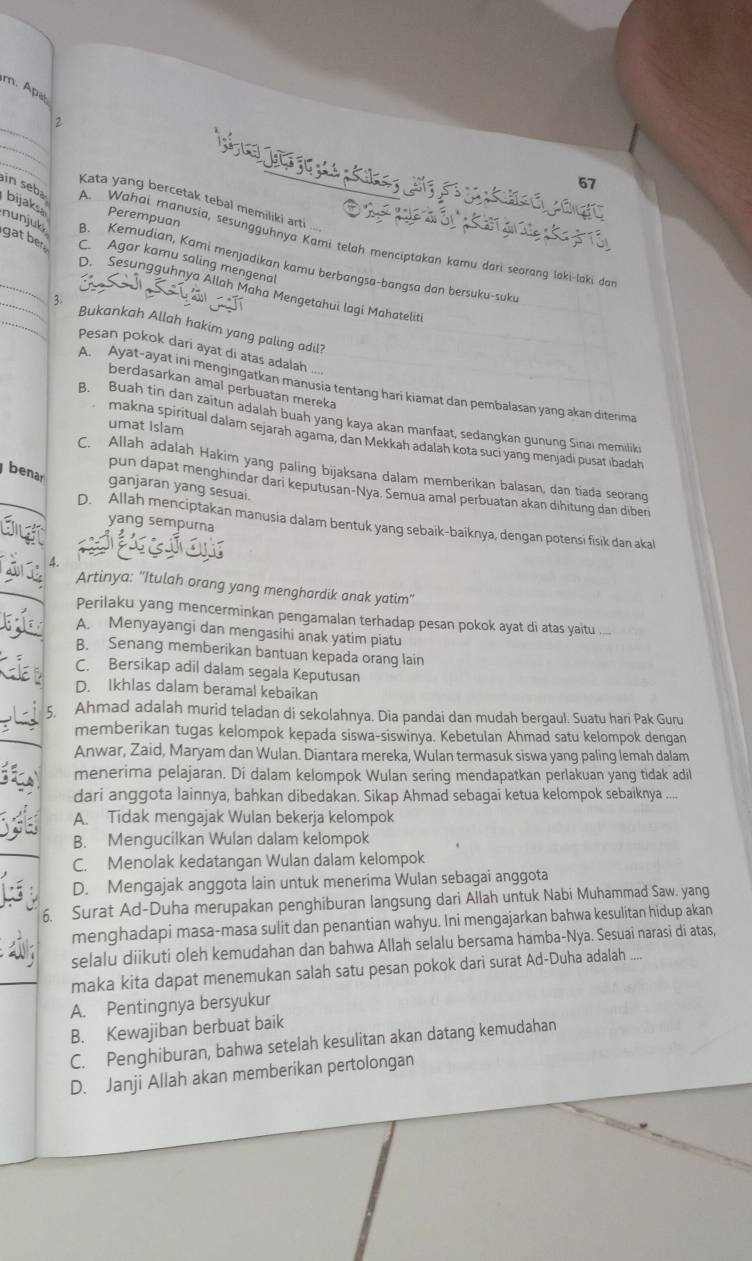 67
2
يٰٓاَيُّهَا النَّاسُ اِنَّا خَلَقْنٰكُمْ مِّنْ ذَكَرٍ وَّاُنْثٰى وَجَعَلْنٰكُمْ شُعُوْبًا وَّقَبَاۤىِٕلَ لِتَعَارَفُوْا ۚ
اِنَّ اَكْرَمَكُمْ عِنْدَ اللّٰهِ اَتْقٰىكُمْ ۗاِنَّ اللّٰهَ عَلِيْمٌ خَبِيْرٌ
Kata yang bercetak tebal memiliki arti ....
A. Wahai manusia, sesungguhnya Kami telah menciptakan kamu dari seorang laki-laki dan
Perempuan
B. Kemudian, Kami menjadikan kamu berbangsa-bangsa dan bersuku-suku
C. Agar kamu saling mengenal
D. Sesungguhnya Allah Maha Mengetahui lagi Mahateliti
3. اَلَيْسَ اللّٰهُ بِاَحْكَمِ الْحٰكِمِيْنَ
Bukankah Allah hakim yang paling adil?
Pesan pokok dari ayat di atas adalah ....
A. Ayat-ayat ini mengingatkan manusia tentang hari kiamat dan pembalasan yang akan diterima
berdasarkan amal perbuatan mereka
B. Buah tin dan zaitun adalah buah yang kaya akan manfaat, sedangkan gunung Sinai memiliki
makna spiritual dalam sejarah agama, dan Mekkah adalah kota suci yang menjadi pusat ibadah
umat Islam
C. Allah adalah Hakim yang paling bijaksana dalam memberikan balasan, dan tiada seorang
pun dapat menghindar dari keputusan-Nya. Semua amal perbuatan akan dihitung dan diberi
ganjaran yang sesuai.
D. Allah menciptakan manusia dalam bentuk yang sebaik-baiknya, dengan potensi fisik dan akal
yang sempurna
4. فَذٰلِكَ الَّذِيْ يَدُعُّ الْيَتِيْمَ
Artinya: "Itulah orang yang menghardik anak yatim"
Perilaku yang mencerminkan pengamalan terhadap pesan pokok ayat di atas yaitu ....
A. Menyayangi dan mengasihi anak yatim piatu
B. Senang memberikan bantuan kepada orang lain
C. Bersikap adil dalam segala Keputusan
D. Ikhlas dalam beramal kebaikan
5. Ahmad adalah murid teladan di sekolahnya. Dia pandai dan mudah bergaul. Suatu hari Pak Guru
memberikan tugas kelompok kepada siswa-siswinya. Kebetulan Ahmad satu kelompok dengan
Anwar, Zaid, Maryam dan Wulan. Diantara mereka, Wulan termasuk siswa yang paling lemah dalam
menerima pelajaran. Di dalam kelompok Wulan sering mendapatkan perlakuan yang tidak adil
dari anggota lainnya, bahkan dibedakan. Sikap Ahmad sebagai ketua kelompok sebaiknya ....
A. Tidak mengajak Wulan bekerja kelompok
B. Mengucilkan Wulan dalam kelompok
C. Menolak kedatangan Wulan dalam kelompok
D. Mengajak anggota lain untuk menerima Wulan sebagai anggota
6. Surat Ad-Duha merupakan penghiburan langsung dari Allah untuk Nabi Muhammad Saw. yang
menghadapi masa-masa sulit dan penantian wahyu. Ini mengajarkan bahwa kesulitan hidup akan
selalu diikuti oleh kemudahan dan bahwa Allah selalu bersama hamba-Nya. Sesuai narasi di atas,
maka kita dapat menemukan salah satu pesan pokok dari surat Ad-Duha adalah ....
A. Pentingnya bersyukur
B. Kewajiban berbuat baik
C. Penghiburan, bahwa setelah kesulitan akan datang kemudahan
D. Janji Allah akan memberikan pertolongan